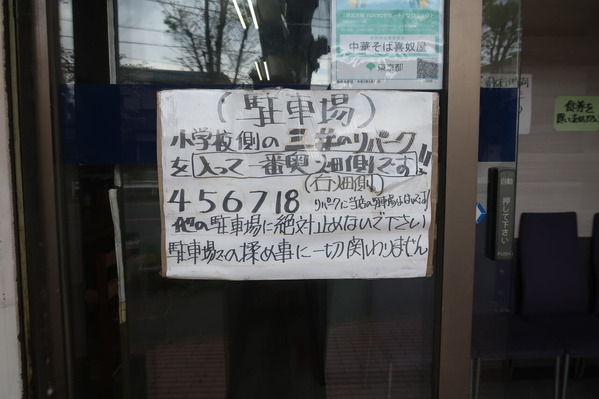 中華そば喜奴屋
東京都
(駐車場)
小学校側の三井のリパーク
を入って一番奥、畑側です!!
(右畑側)
4 5 6 7 8
リパークに当店の駐車場はないです!
他の駐車場に絶対止めないで下さい
駐車場での揉め事に一切関わりません
自動
押して下さい
PUSH
食券を